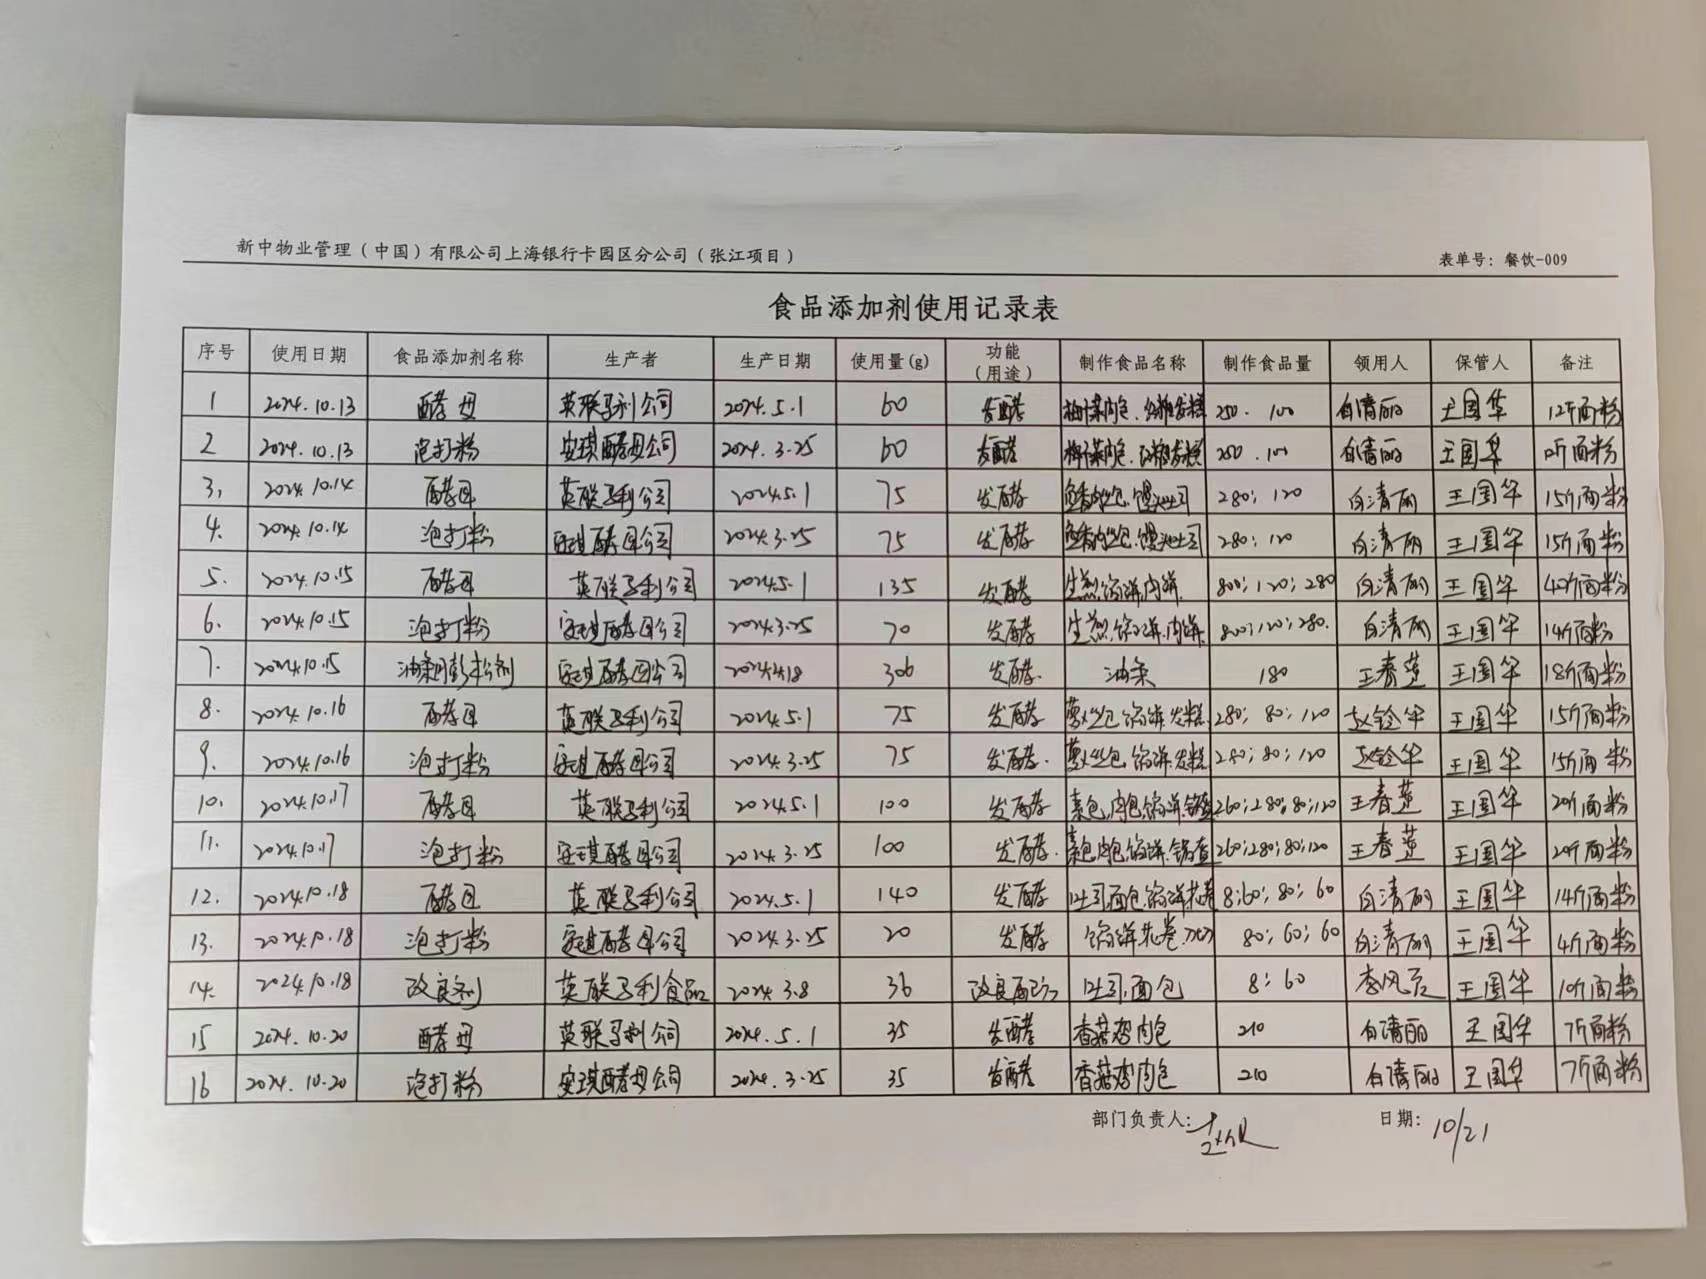 新中物业管理（中国）有限公司上海银行卡园区分公司（张江项目） 表单号：餐饮-009
食品添加剂使用记录表
序号 使用日期 食品添加剂名称 生产者 生产日期 使用量(g) 功能（用途） 制作食品名称 制作食品量 领用人 保管人 备注
1 2024.10.13 酵母 英联马利公司 2024.5.1 60 发酵 梅干菜肉包. 250. 100 白清丽 王国华 12斤面粉
2 2024.10.13 泡打粉 安琪酵母公司 2024.3.25 60 发酵 梅干菜肉包. 250.100 白清丽 王国华 12斤面粉
3, 2024.10.14 酵母 英联马利公司 2024.5.1 75 发酵 280; 120 白清丽 王国华 15斤面粉
4. 2024.10.14 泡打粉 安琪酵母公司 2024.3.25 75 发酵 280; 120 白清丽 王国华 15斤面粉
5. 2024.10.15 酵母 英联马利公司 2024.5.1 135 发酵 生煎.馅饼.肉饼. 800; 120; 280 白清丽 王国华 42斤面粉
6. 2024.10.15 泡打粉 安琪酵母公司 2024.3.25 70 发酵 生煎.馅饼.肉饼. 800; 120; 280. 白清丽 王国华 14斤面粉
7. 2024.10.15 油条膨松剂 安琪酵母公司 2024.4.18 306 发酵. 油条 180 王春莲 王国华 18斤面粉
8. 2024.10.16 酵母 英联马利公司 2024.5.1 75 发酵. 萝卜丝包.馅饼.发糕. 280; 80; 120 赵铨华 王国华 15斤面粉
9. 2024.10.16 泡打粉 安琪酵母公司 2024.3.25 75 发酵. 萝卜丝包.馅饼.发糕 280; 80; 120 赵铨华 王国华 15斤面粉
10. 2024.10.17 酵母 英联马利公司 2024.5.1 100 发酵 素包.肉包.馅饼. 260; 280; 80; 120 王春莲 王国华 20斤面粉
11. 2024.10.17 泡打粉 安琪酵母公司 2024.3.25 100 发酵. 素包.肉包.馅饼. 260; 280; 80; 120 王春莲 王国华 20斤面粉
12. 2024.10.18 酵母 英联马利公司 2024.5.1 140 发酵 吐司.面包.馅饼.花卷 8; 60; 80; 60 白清丽 王国华 14斤面粉
13. 2024.10.18 泡打粉 安琪酵母公司 2024.3.25 20 发酵 馅饼.花卷. 80; 60; 60 白清丽 王国华 4斤面粉
14. 2024.10.18 改良剂 英联马利食品 2024.3.8 36 改良 吐司.面包 8; 60 王国华 10斤面粉
15 2024.10.20 酵母 英联马利公司 2024.5.1 35 发酵 香菇鸡肉包 210 白清丽 王国华 7斤面粉
16 2024.10.20 泡打粉 安琪酵母公司 2024.3.25 35 发酵 香菇鸡肉包 210 白清丽 王国华 7斤面粉
部门负责人： 日期：10/21